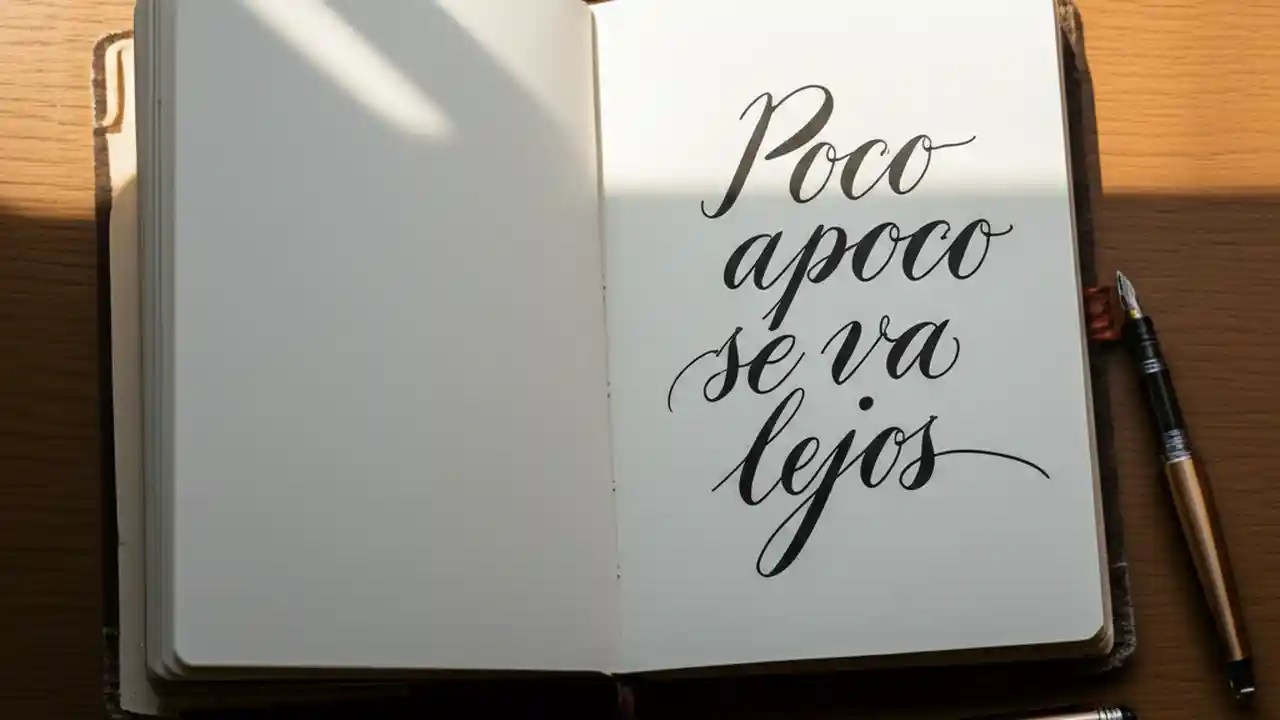 Poco
a poco
se va
lejos